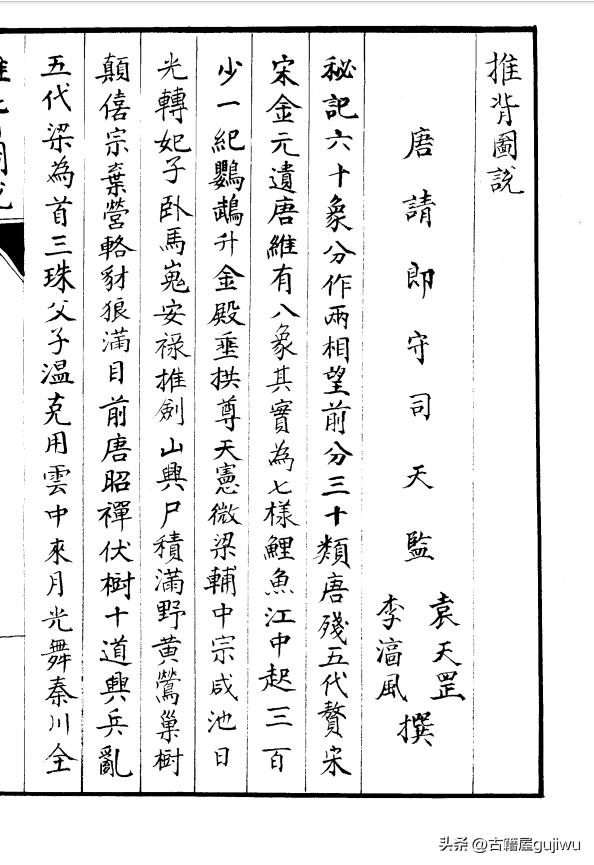 推背圖說
唐請郎守司天監
袁天罡
李滈風
撰
秘記六十象分作兩相望前分三十類唐殘五代贅宋
宋金元遺唐維有八象其實為七樣鯉魚江中起三百
少一紀鸚鵡升金殿垂拱尊天憲微梁輔中宗咸池日
光轉妃子卧馬嵬安祿推劍山興尸積滿野黃鶯巢樹
顛僖宗棄營輅豺狼滿目前唐昭禪伏樹十道興兵亂
五代梁為首三珠父子温克用雲中來月光舞秦川全
头条@古籍屋gujiwu